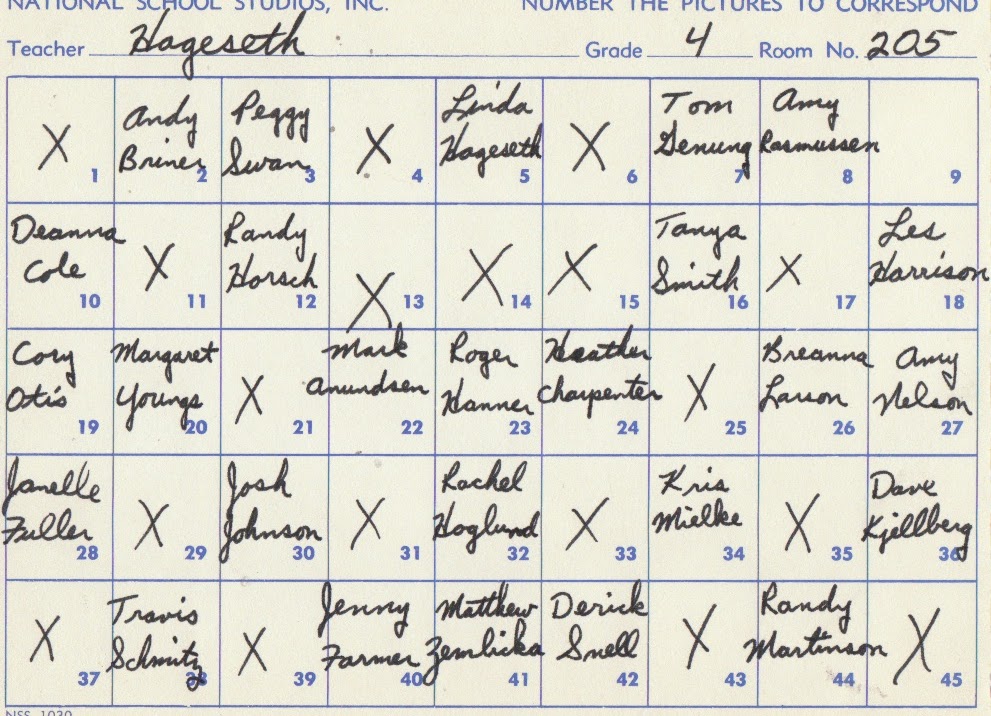 NATIONAL SCHOOL STUDIOS, INC. NUMBER THE PICTURES TO CORRESPOND
Teacher Hageseth Grade 4 Room No. 205
X 1
Andy
Briner 2
Peggy
Swan 3
X 4
Linda
Hageseth 5
X 6
Tom
Genung 7
Amy
Rasmussen 8
9
Deanna
Cole 10
X 11
Randy
Horsch 12
X 13
X 14
X 15
Tanya
Smith 16
X 17
Les
Harrison 18
Cory
Otis 19
Margaret
Youngs 20
X 21
Mark
Anundsen 22
Roger
Hanner 23
Heather
Charpenter 24
X 25
Breanna
Larson 26
Amy
Nelson 27
Janelle
Fuller 28
X 29
Josh
Johnson 30
X 31
Rachel
Hoglund 32
X 33
Kris
Mielke 34
X 35
Dave
Kjellberg 36
X 37
Travis
Schmitz 38
X 39
Jenny
Farmer 40
Matthew
Zembicka 41
Derick
Snell 42
X 43
Randy
Martinson 44
X 45
NSS 1030